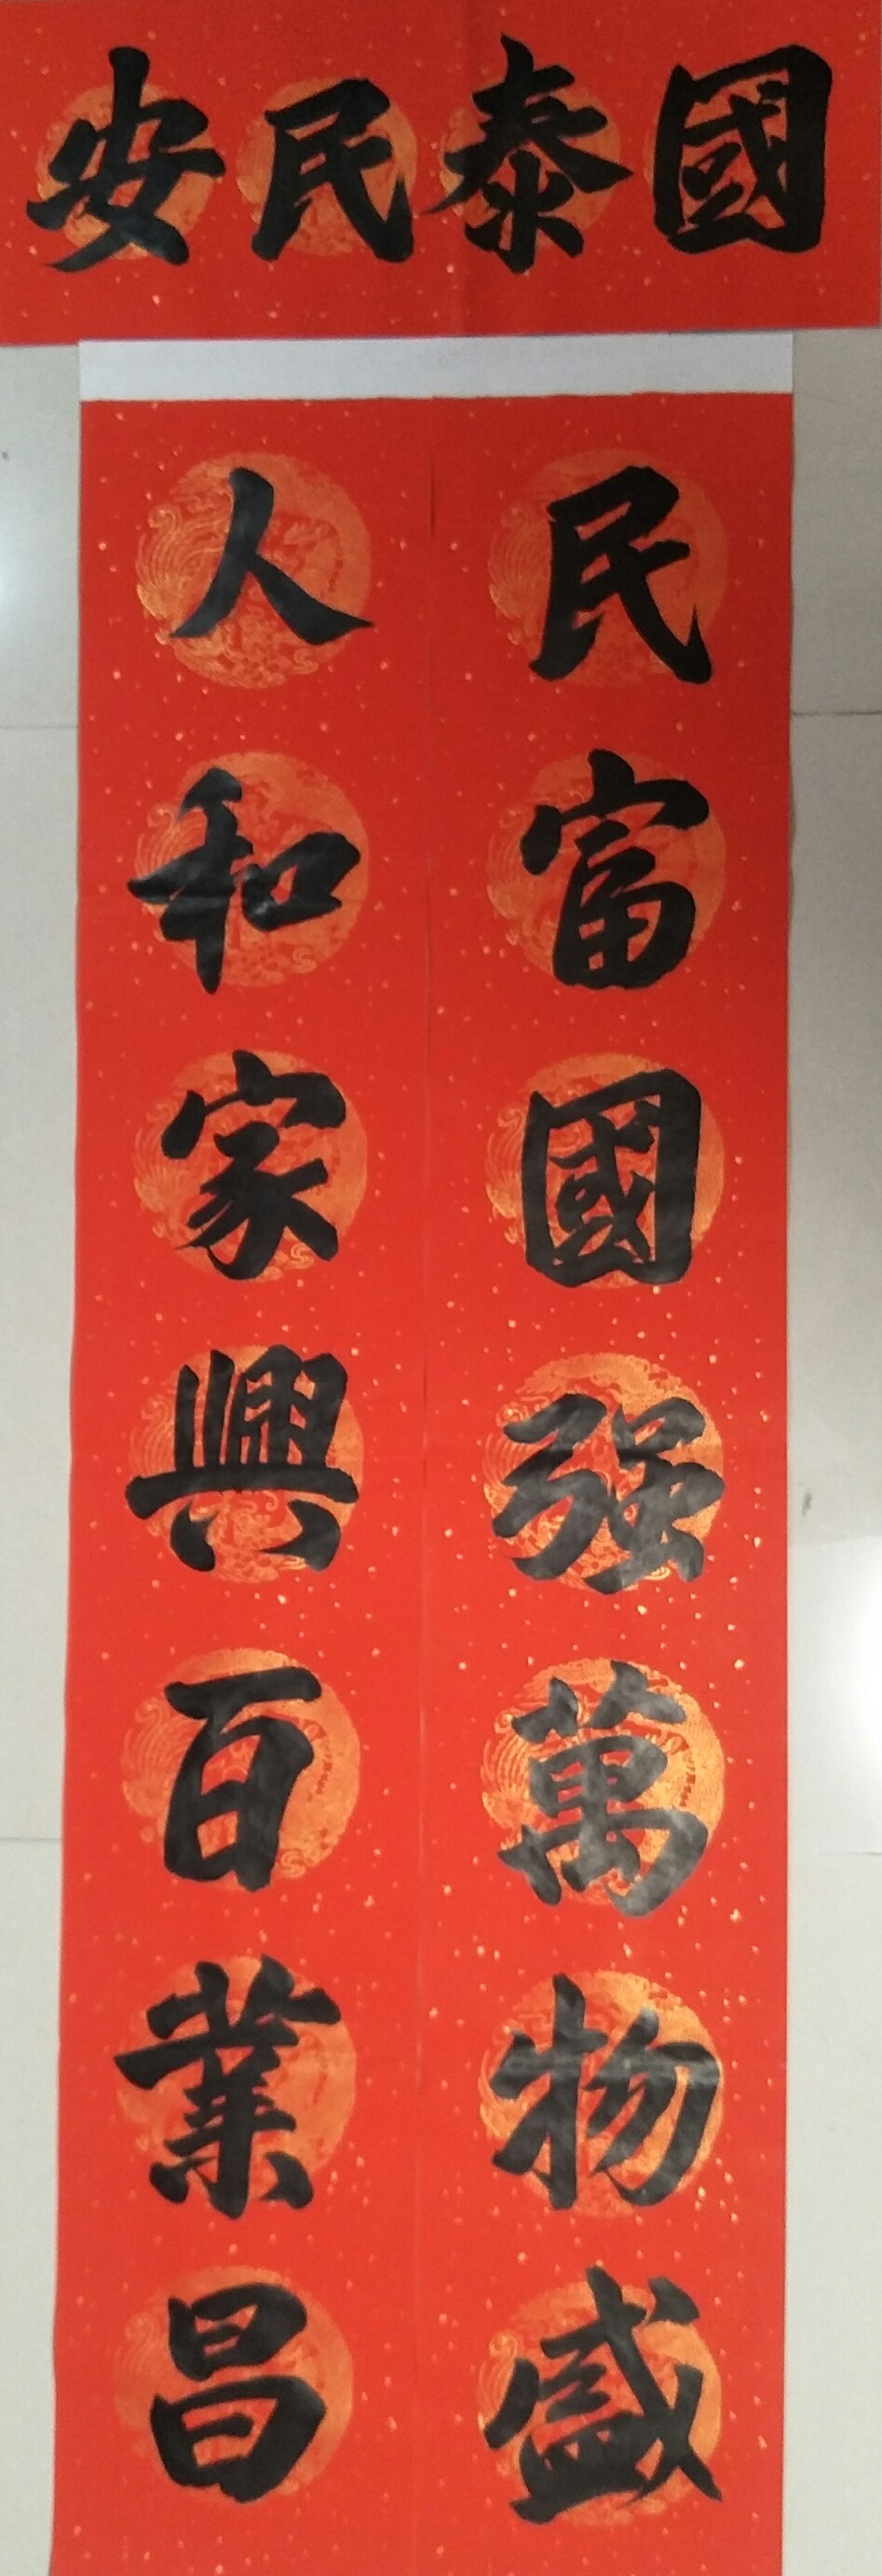 國泰民安
民富國强萬物盛
人和家興百業昌